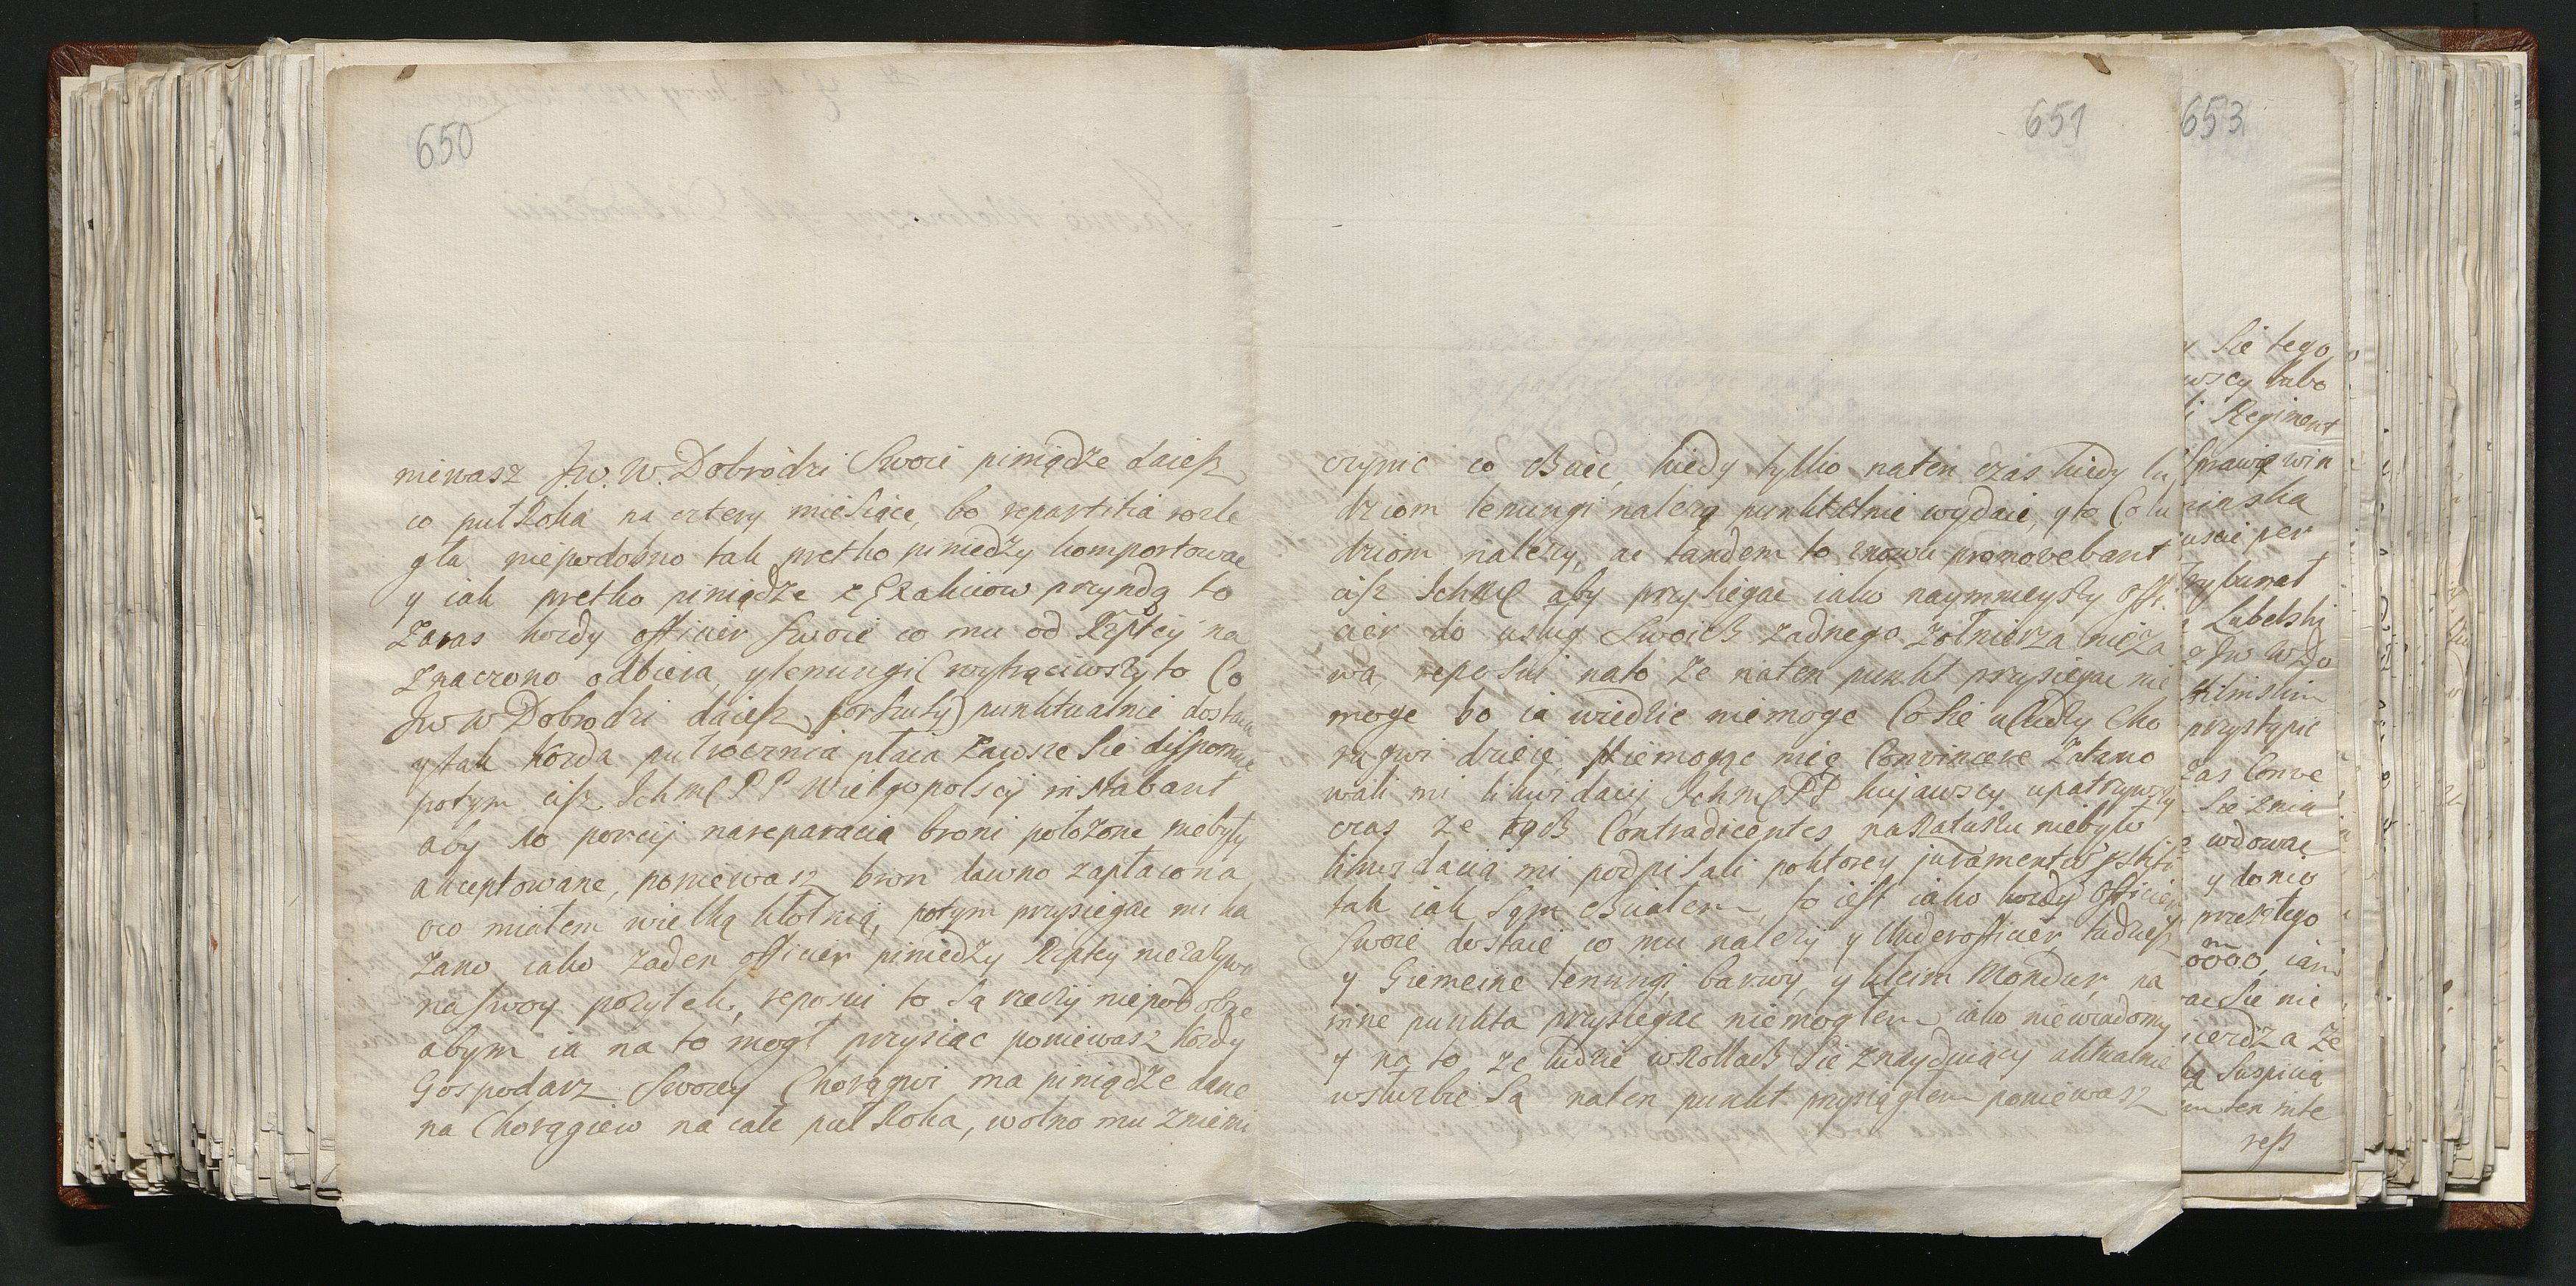 650
niewasz J.W.W. Dobrodzi Swoie piniądze daiesz
co puł Roka na cztery miesiące, bo repartitia rozle
gła niepodobno tak pretko piniedzy komportowac
y iak pretko piniądze z Exakciow przyndą to
Zaras kozdy officier swoie co mu od Rzptey na
znaczono odbiera, y lenungi (wytrąciwszy to Co
JWW Dobrodzi daiesz forszuty) punktualnie dostaie
y tak Kozda pułrocznia płaca zawsze sie disponuie
potym ciż Ichmc PP Wielgopolscy instabant
aby 10 porcij na reparacią broni położone niebyły
akceptowane, poniewasz bron dawno zapłacona
oco miałem wielką kłotnią, potym przysiegac mi ka
zano iako zaden officier piniedzy Rzptey niezazywa
na swoy pozytek, reposui to są rzeczy niepodobne
abym ia na to mogł przysiac poniewasz kozdy
Gospodarz Swoiey Chorągwi ma piniądze dane
na Chorągiew na całe puł Roka, wolno mu z niemi
651
czynic co chciec, kiedy tylko naten czas kiedy lu
dziom lenungi nalezą punktualnie wydaie, y to Co lu
dziom nalezy, ac tandem to znowu promovebant
ciż Ichmc aby przysiegac iako naymnieyszy offi
cier do usług Swoich zadnego zołnierza nieza
wa, reposui na to ze naten punkt przysiegac nie
moge bo ia wiedzie niemoge Co sie u kozdy Cho
rągwi dzieie, Niemogąc mię Convincere zatamo
wali mi likwidacij Ichmc PP kujawscy upatrzywszy
czas ze tych Contradicentes na Ratuszu niebyło
likwidacią mi podpisali poktorey jurament
tak iak sam chciałem, to iest iako kozdy Officier
swoie dostaie co mu nalezy y Underofficier tudziesz
y Giemeine lenungi, barwy, y kleim Mondur, na
inne punkta przysiegac niemogłem iako niewiadomy
y na to ze ludzie w Rollach sie znayduiący aktualnie
w słuzbie są naten punkt przysiągłem poniewasz
653
sie tego
wscy lubo
i Regiment
sprawą win
ninska
uscic per
Trybunał
Lubelski
JWWDo
Kiłmskim
przystąpic
zas Conve
sie znia
wdowac
y do niey
przeszłego
m
0000 iam
ac sie nie
ierdza ze
ką suspicią
m ten inte
ress